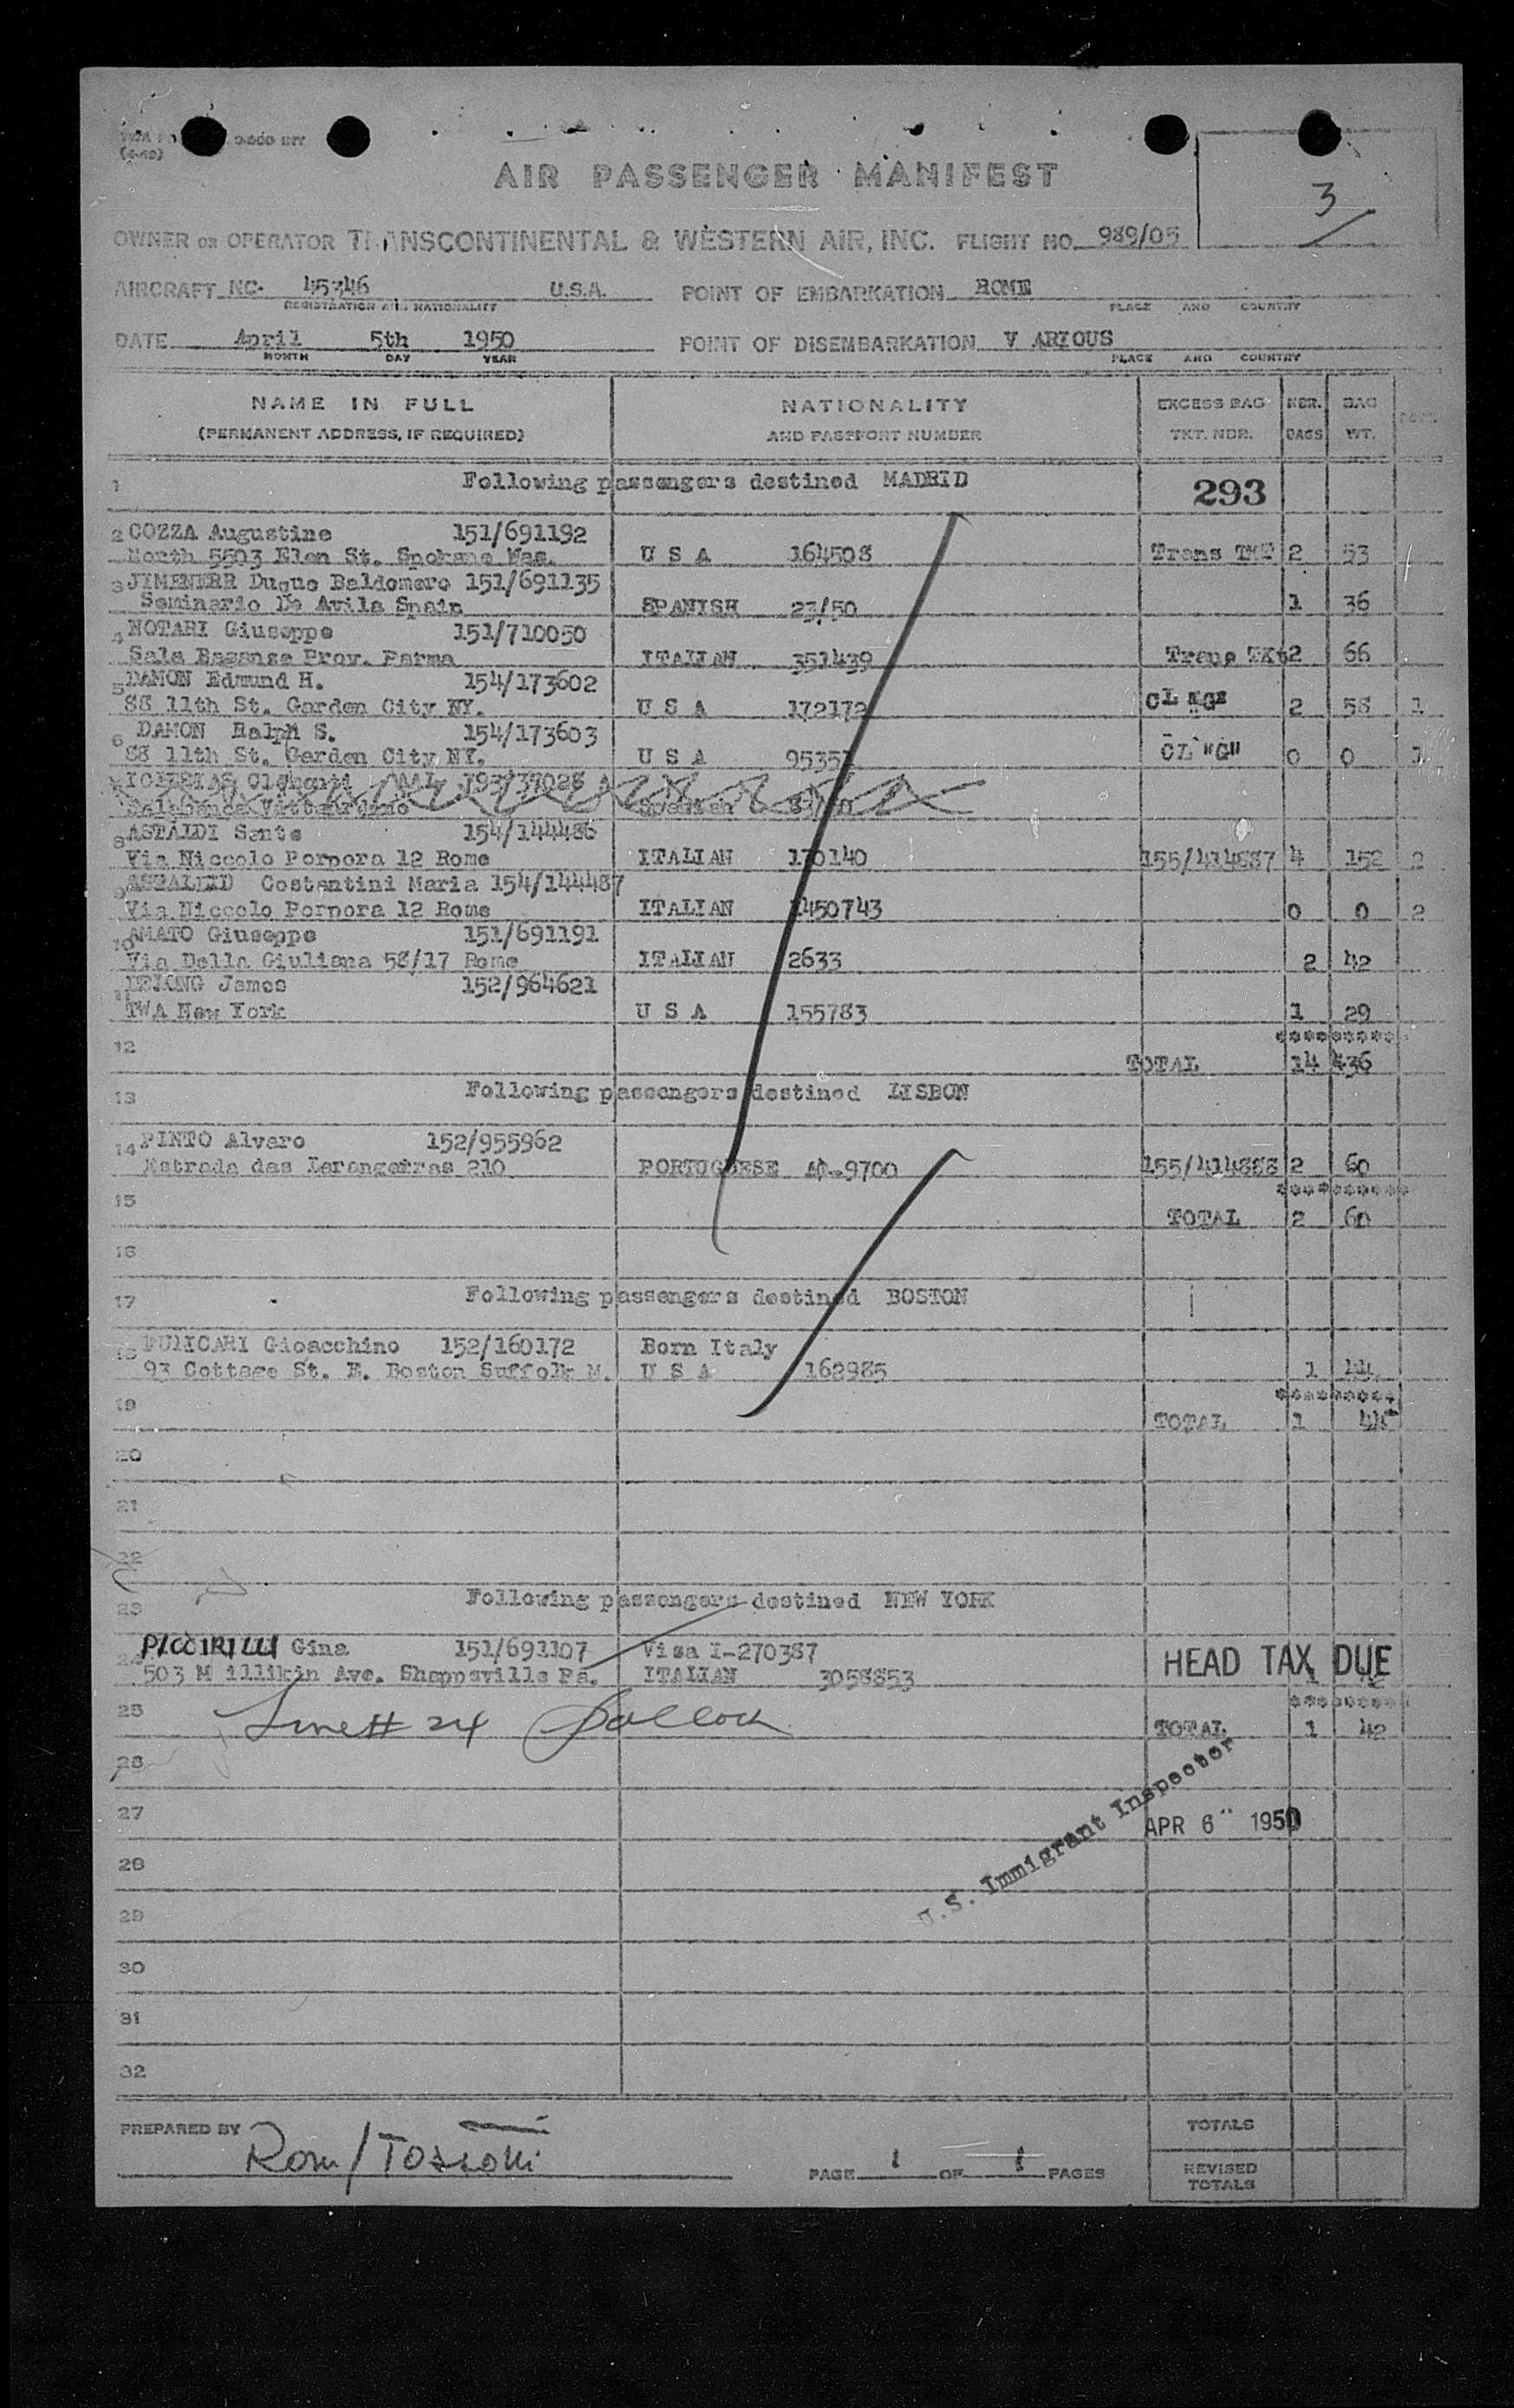 (4-49)
AIR PASSENGER MANIFEST
3
OWNER OR OPERATOR TRANSCONTINENTAL & WESTERN AIR, INC. FLIGHT NO. 989/05
AIRCRAFT NC. 45346 U.S.A. POINT OF EMBARKATION ROME
REGISTRATION AND NATIONALITY PLACE AND COUNTRY
DATE April 5th 1950 POINT OF DISEMBARKATION V ARIOUS
MONTH DAY YEAR PLACE AND COUNTRY
NAME IN FULL NATIONALITY EXCESS BAG NBR. BAG
(PERMANENT ADDRESS, IF REQUIRED) AND PASSPORT NUMBER TKT. NBR. BAGS WT.
1 Following passengers destined MADRID 293
2 COZZA Augustine 151/691192
North 5503 Elen St. Spokane Was. U S A 164508 Trans TKT 2 53
3 JIMENERR Duque Baldomero 151/691135
Seminario De Avila Spain SPANISH 23/50 1 36
4 NOTARI Giuseppe 151/710050
Sala Baganse Prov. Parma ITALIAN 351439 Trans TKt 2 66
5 DAMON Edmund H. 154/173602
88 11th St. Garden City NY. U S A 172172 CL "G" 2 58 1
6 DAMON Ralph S. 154/173603
88 11th St. Garden City NY. U S A 95357 CL "G" 0 0 1
8 ASTALDI Sante 154/144486
Via Niccolo Porpora 12 Rome ITALIAN 170140 155/414887 4 152 2
9 Costantini Maria 154/144487
Via Niccolo Porpora 12 Rome ITALIAN 1450743 0 0 2
10 AMATO Giuseppe 151/691191
Via Della Giuliana 58/17 Rome ITALIAN 2633 2 42
11 James 152/964621
TWA New York U S A 155783 1 29
12 *********
TOTAL 14 436
13 Following passengers destined LISBON
14 PINTO Alvaro 152/955962
Estrada das Larangeiras 210 PORTUGUESE 9700 155/414888 2 60
15 **********
TOTAL 2 60
16
17 Following passengers destined BOSTON
18 PULICARI Gioacchino 152/160172 Born Italy
93 Cottage St. E. Boston Suffolk M. U S A 162985 1 44
19 *********
TOTAL 1 44
20
21
22
23 Following passengers destined NEW YORK
24 PICCIRILLI Gina 151/691107 Visa I-270387 HEAD TAX DUE
503 M illikin Ave. Sheppsville Pa. ITALIAN 3058853
25 Line # 24 Pollock *********
TOTAL 1 42
26
U.S. Immigrant Inspector
27 APR 6 1950
28
29
30
31
32
PREPARED BY Rom/Tossoni TOTALS
PAGE 1 OF 1 PAGES REVISED
TOTALS